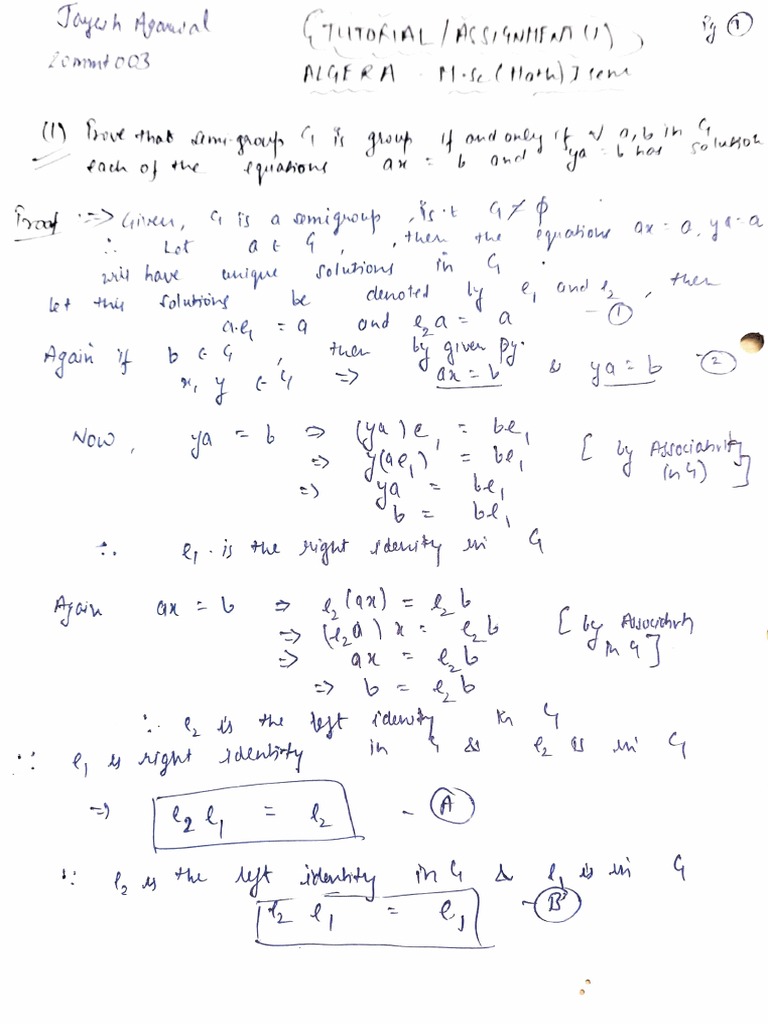 Jayesh Agarwal
20mmt003
(TUTORIAL/ASSIGNMENT (1)) Pg 1
ALGERA M.Sc (Math) I sem
(1) Prove that semi-group G is group if and only if ∀ a, b in G
each of the equations ax = b and ya = b has solution
Proof :⇒ Given, G is a semigroup, s.t G ≠ ϕ
∴ Let a ∈ G, then the equations ax = a, ya = a
will have unique solutions in G
let this solutions be denoted by e₁ and e₂, then
a.e₁ = a and e₂a = a - ①
Again if b ∈ G, then by given py.
x, y ∈ G ⇒ ax = b & ya = b - ②
Now, ya = b ⇒ (ya)e₁ = be₁
⇒ y(ae₁) = be₁ [by Associativity in G)]
⇒ ya = be₁
b = be₁
∴ e₁ is the right idenity in G
Again ax = b ⇒ e₂(ax) = e₂b
⇒ (e₂a)x = e₂b [by in G]
⇒ ax = e₂b
⇒ b = e₂b
∵ e₂ is the left idenity in G
∵ e₁ is right identity in G & e₂ is in G
⇒ e₂e₁ = e₂ - Ⓐ
∵ e₂ is the left identity in G & e₁ is in G
e₂e₁ = e₁ - Ⓑ